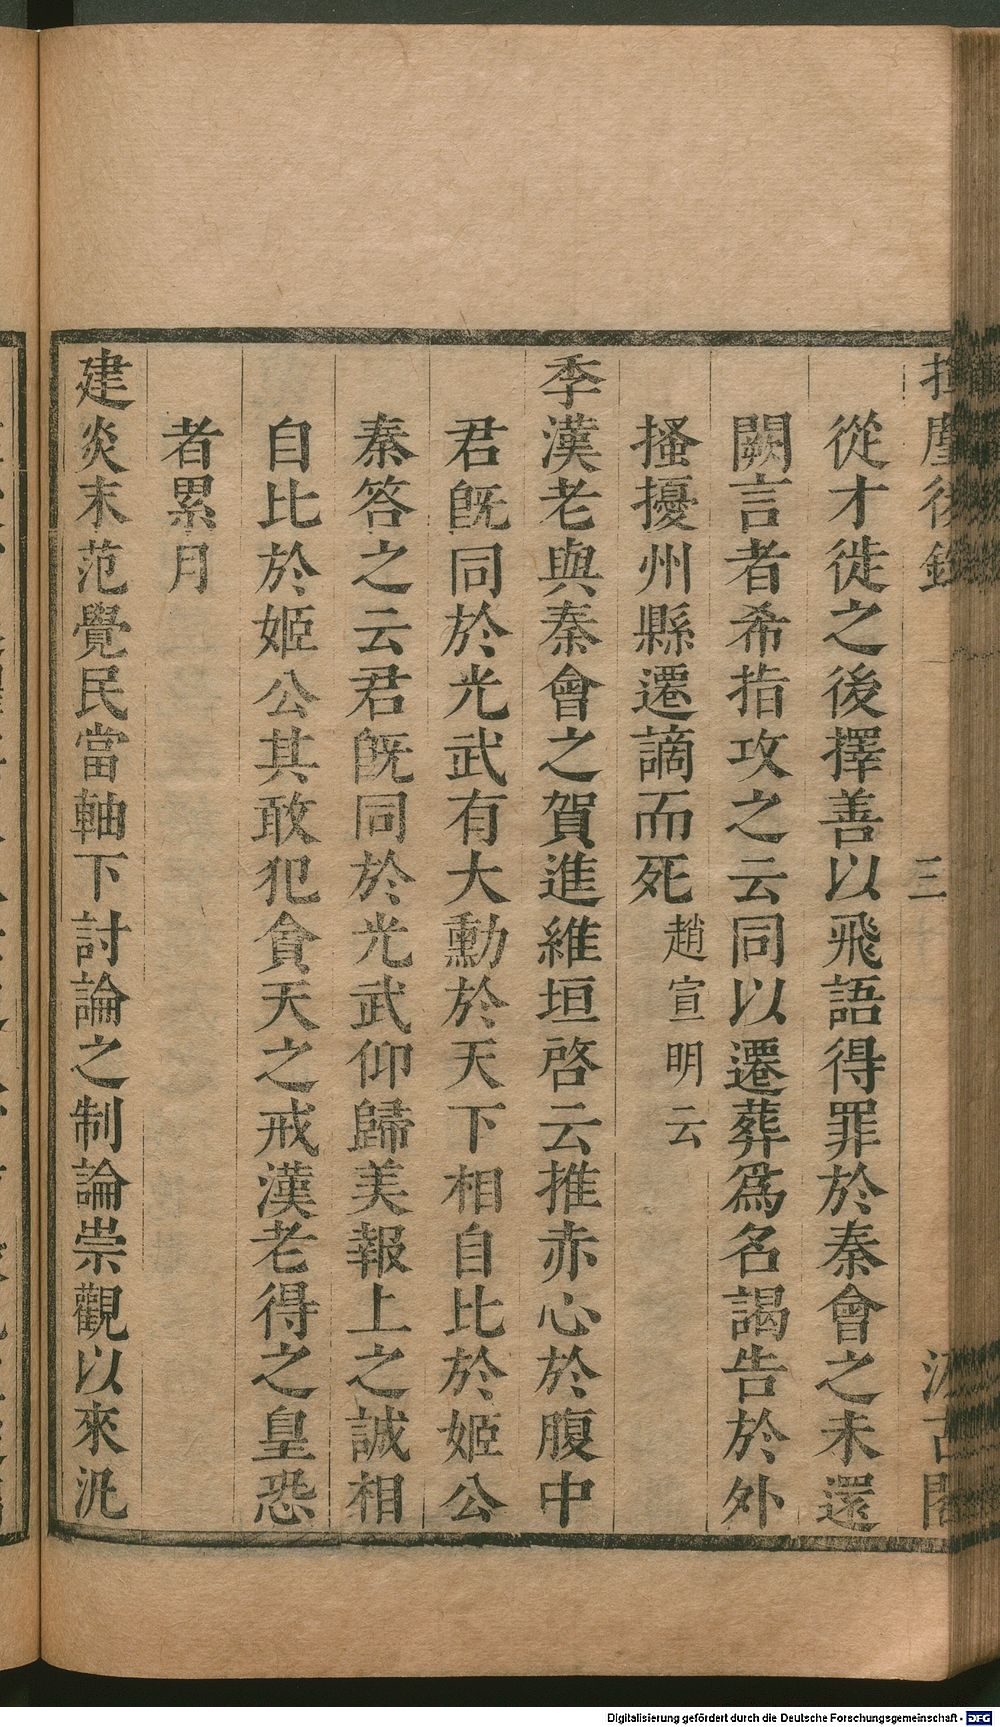 從才徙之後擇善以飛語得罪於秦會之未還
闕言者希指攻之云同以遷葬爲名謁告於外
搔擾州縣遷謫而死趙宣明云
季漢老與秦會之賀進維垣啓云推赤心於腹中
君旣同於光武有大勳於天下相自比於姬公
秦答之云君旣同於光武仰歸美報上之誠相
自比於姬公其敢犯貪天之戒漢老得之皇恐
者累月
建炎末范覺民當軸下討論之制論崇觀以來汎
三
Digitalisierung gefördert durch die Deutsche Forschungsgemeinschaft - DFG